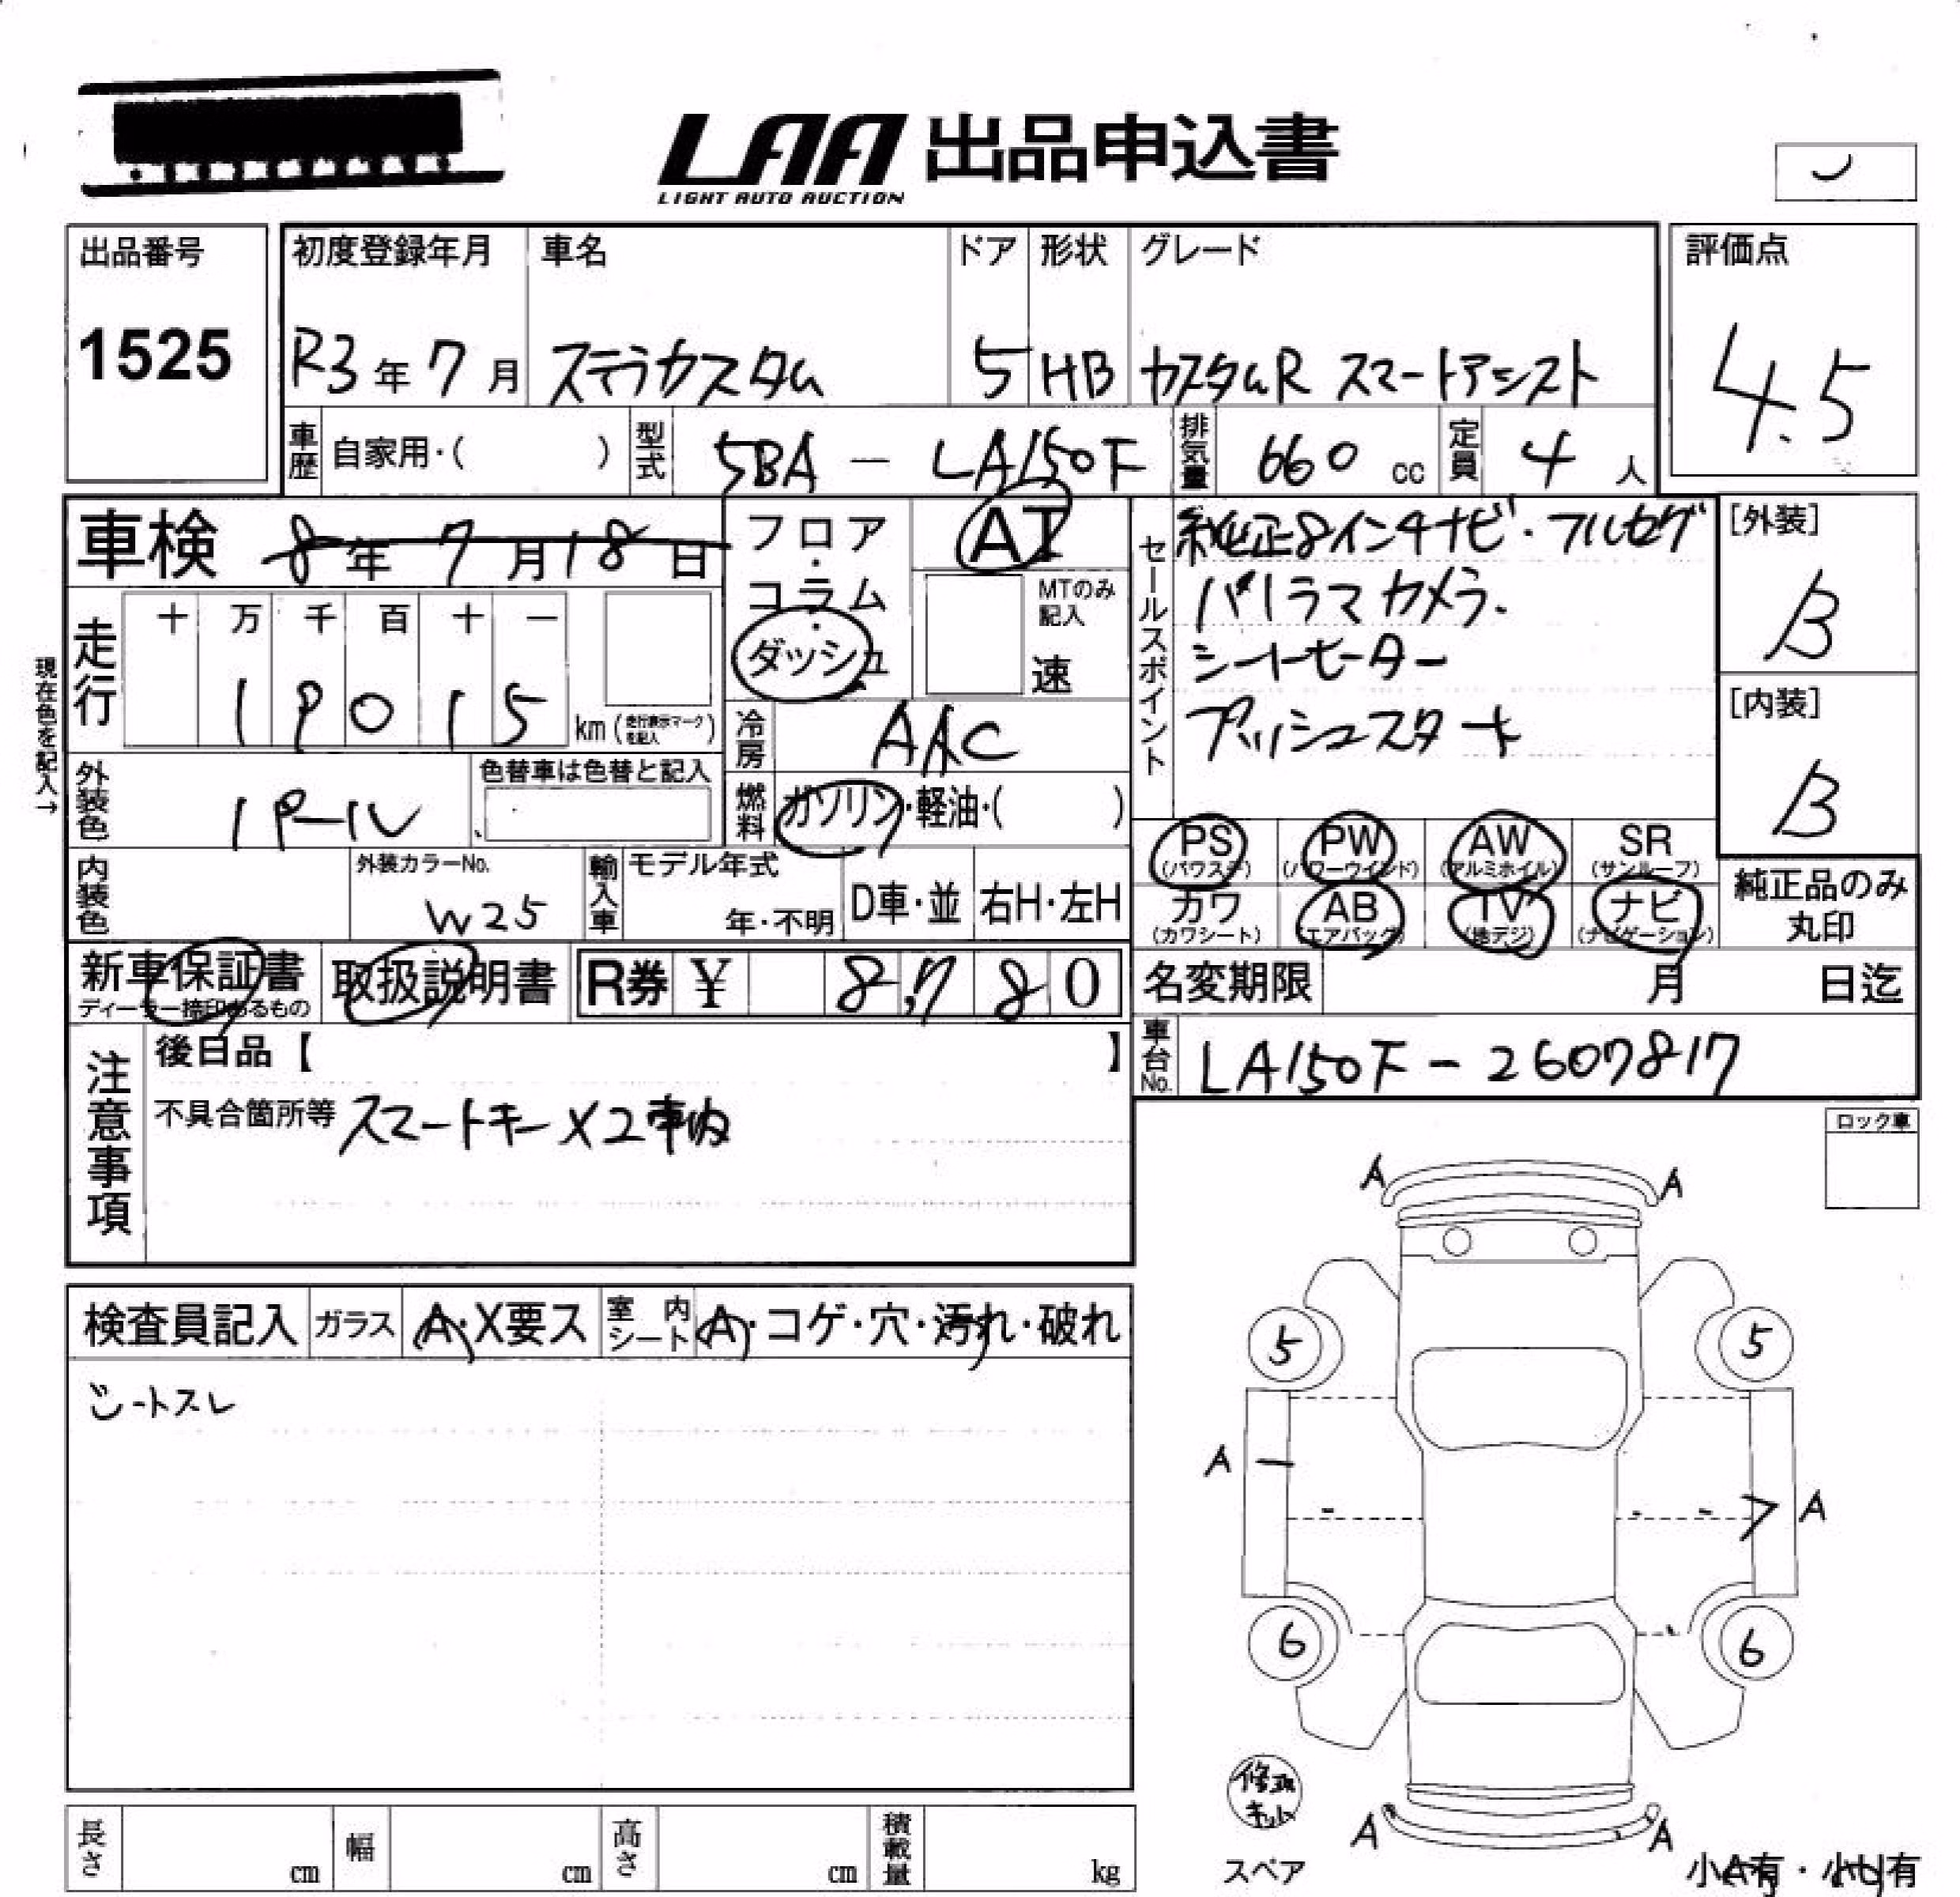 LAA 出品申込書
LIGHT AUTO AUCTION
出品番号
1525
初度登録年月
R3年7月
車名
ステラカスタム
ドア
5
形状
HB
グレード
カスタムR スマートアシスト
評価点
4.5
車歴 自家用・( )
型式 5BA - LA150F
排気量 660 cc
定員 4 人
車検 8年7月18日
フロア・コラム・ダッシュ
AT
MTのみ記入
速
セールスポイント
純正8インチナビ・フルセグ
パノラマカメラ.
シートヒーター
プッシュスタート
[外装]
B
[内装]
B
現在色を記入→
走行
十 万 千 百 十 一
19015
km (走行表示マークを記入)
冷房 AAC
外装色 パール
色替車は色替と記入
燃料 ガソリン・軽油・( )
内装色
外装カラーNo.
W25
輸入車
モデル年式
年・不明
D車・並
右H・左H
PS (パワステ)
PW (パワーウインド)
AW (アルミホイル)
SR (サンルーフ)
カワ (カワシート)
AB (エアバック)
TV (地デジ)
ナビ (ナビゲーション)
純正品のみ丸印
新車保証書
ディーラー捺印あるもの
取扱説明書
R券 ¥ 8,780
名変期限 月 日迄
車台No. LA150F - 2607817
注意事項
後日品【 】
不具合箇所等 スマートキー×2車内
ロック車
検査員記入
ガラス A・X要ス
室内シート A・コゲ・穴・汚れ・破れ
シートスレ
A A
5 5
A A
6 6
修理キット
スペア
A A
小A有・小U有
長さ cm
幅 cm
高さ cm
積載量 kg